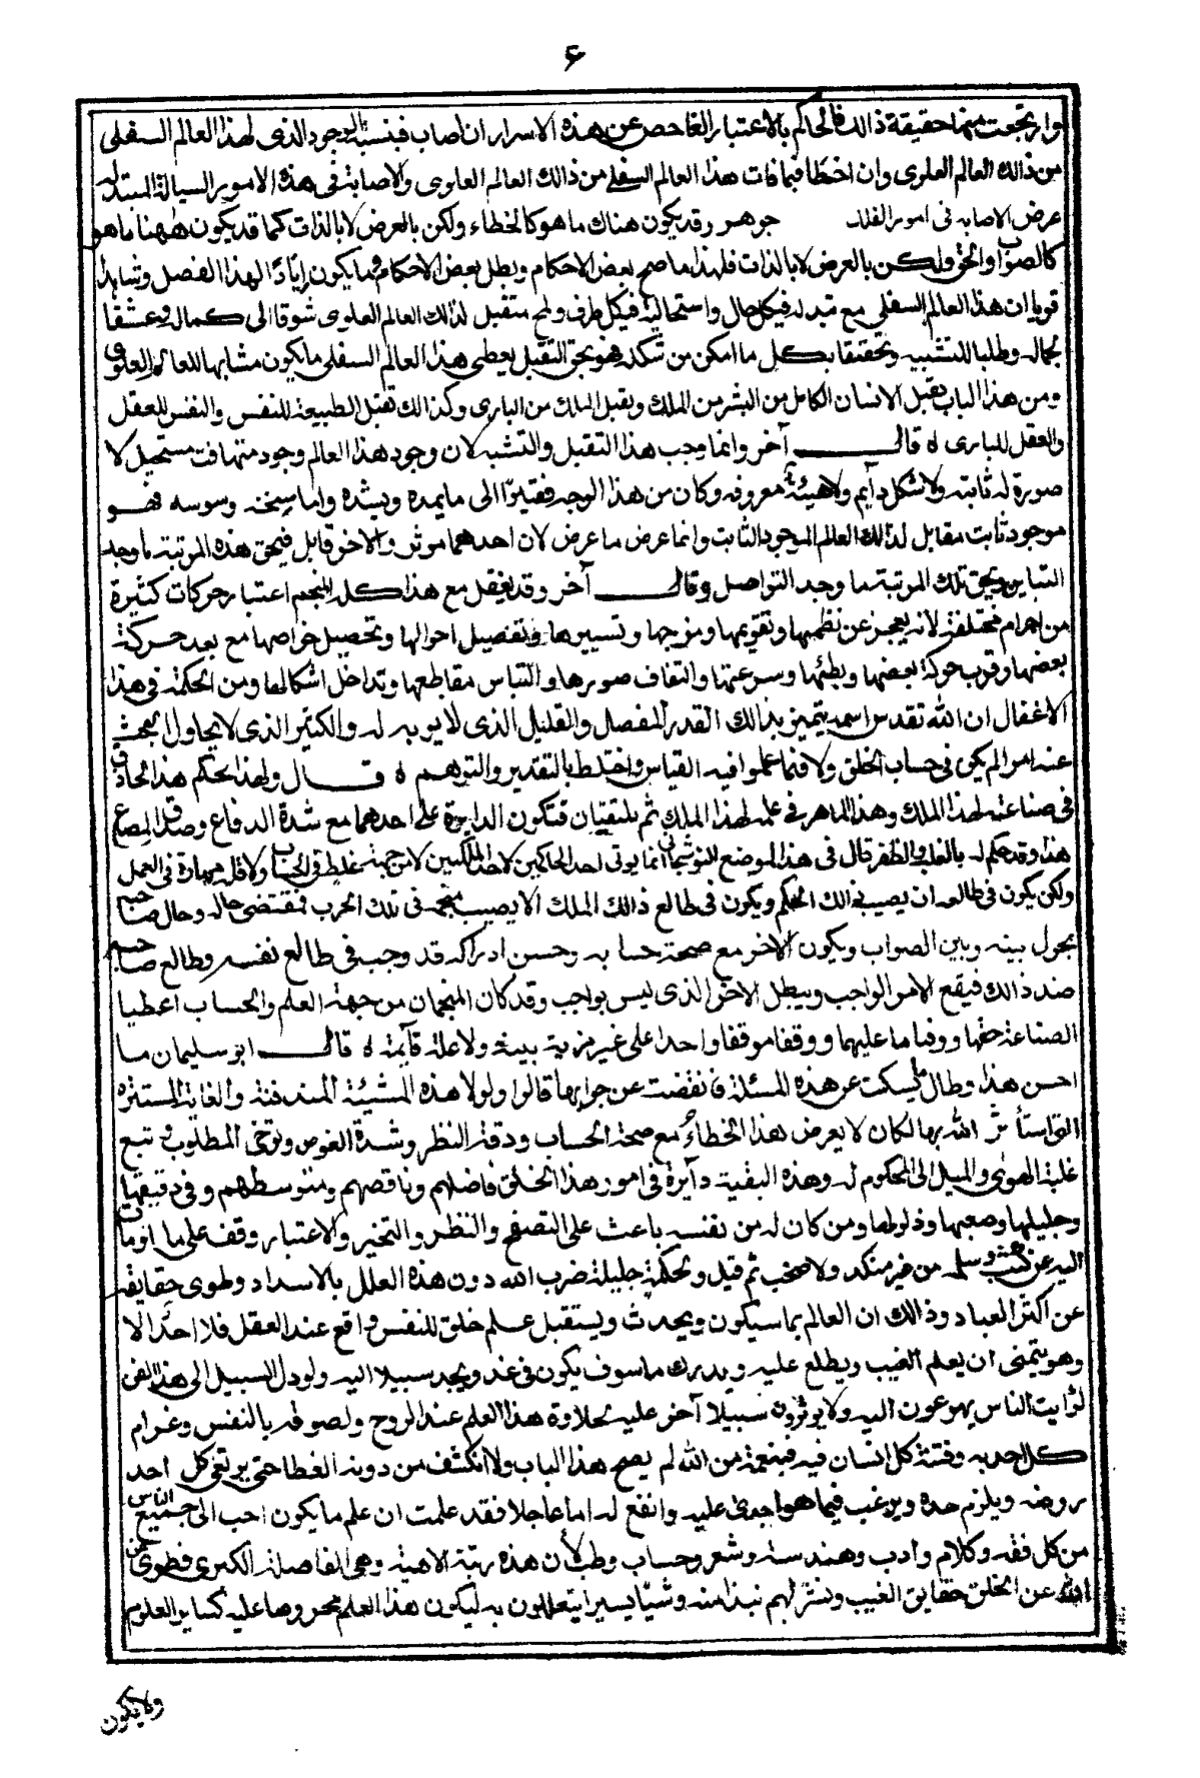 ٦
وارتجعت منهما حقيقة ذالك فالحاكم بالاعتبار الفاحص عن هذه الاسرار ان اصاب فبنسبة الوجود الذى لهذا العالم السفلى
من ذالك العالم العلوى وان اخطا فبما فات هذا العالم السفلى من ذالك العالم العلوى والاصابة فى هذه الامور السيالة المتبدلة
عرض الاصابه فى امور الفلك جوهر وقد يكون هناك ما هو كالخطاء ولكن بالعرض لا بالذات كما قد يكون ههنا ما هو
كالصواب والحق ولكن بالعرض لا بالذات فلهذا ما صح بعض الاحكام وبطل بعض الاحكام ومما يكون لهذا الفصل وشاهدا
قويا ان هذا العالم السفلى مع تبدله فى كل حال واستحالته فى كل طرف ولمح متقبل لذالك العالم العلوى شوقا الى كماله وعشقا
لجماله وطلبا للتشبيه وتحقيقا بكل ما امكن من شكله فهو بحق التقبل يعطى هذا العالم السفلى ما يكون مشابها للعالم العلوى
ومن هذا الباب تقبل الانسان الكامل من البشر من الملك وتقبل الملك من البارى وكذالك تقبل الطبيعة للنفس والنفس للعقل
والعقل للبارى ه قال آخر وانما وجب هذا التقبل والتشبه لان وجود هذا العالم وجود متهافت مستحيل لا
صورة له ثابتة ولا شكل دآيم ولا هيئة معروفه وكان من هذا الوجه فقيرا الى ما يمده ويشده واما سنخه وسوسه فهو
موجود ثابت مقابل لذالك العالم الموجود الثابت وانما عرض ما عرض لان احدهما موثر والاخر قابل فبحق هذه المرتبة ما وجد
التباين وبحق تلك المرتبة ما وجد التواصل وقال آخر وقد يغفل مع هذا كله المنجم اعتبار حركات كثيرة
من اجرام مختلفة لانه يعجز عن نظمها وتقويمها ومزجها وتسييرها وتفصيل احوالها وتحصيل خواصها مع بعد حركة
بعضها وقرب حركة بعضها وبطئها وسرعتها والتفاف صورها والتباس مقاطعها وتداخل اشكالها ومن الحكمة فى هذا
الاغفال ان الله تقدس اسمه يتميز بذالك القدر المفصل والقليل الذى لا يوبه له والكثير الذى لا يحاول البحث
عنه امرا لم يكن فى حساب الخلق ولا فيما عملوا فيه القياس واختلط بالتقدير والتوهم ه قال ولهذا يحكم هذا الحاذق
فى صناعته لهذا الملك وهذا الماهر فى علمه لهذا الملك ثم يلتقيان فتكون الدايرة على احدهما مع شدة الدفاع وصدق المصاع
هذا وقد حكم له بالغلبة والظفر قال فى هذا الموضع للنوشجانى انما يوتى احد الحاكمين لاحد الملكين لا من جهة غلط فى الحساب ولا قلة مهارة فى العمل
ولكن يكون فى طالعه ان يصيب فى ذالك الحكم ويكون فى طالع ذالك الملك الا يصيب منجمه فى تلك الحرب فمقتضى حاله وحال صاحبه
يحول بينه وبين الصواب ويكون الاخر مع صحة حسابه وحسن ادراكه قد وجب فى طالع نفسه وطالع صاحبه
ضد ذالك فيقع الامر الواجب ويبطل الاخر الذى ليس بواجب وقد كان المنجمان من جهة العلم والحساب اعطيا
الصناعة حقها ووفيا ما عليهما ووقفا موقفا واحدا على غير مزية بينة ولا علة قآيمة ه قال ابو سليمان ما
احسن هذا وطال عن هذه المسئلة عن جوابها قالوا ولولا هذه المشيئة المندفنة والغاية المستتره
التى استأثر الله بها لكان لا يعرض هذا الخطاء مع صحة الحساب ودقة النظر وشدة الغوص وتوخى المطلوب و تبع
غلبة الهوى والميل الى المحكوم له وهذه البقية دآيرة فى امور هذا الخلق فاضلهم وناقصهم ومتوسطهم وفى دقيقها
وجليلها وصعبها وذلولها ومن كان له من نفسه باعث على التصفح والنظر والتخير والاعتبار وقف على ما اومات
اليه عن كثب وسلم من غير منكد ولا صخب ثم قيل ولحكمة جليلة ضرب الله دون هذه العلل بالاسداد وطوى حقايقه
عن اكثر العباد وذالك ان العالم بما سيكون ويحدث ويستقبل علم خلق للنفس واقع عند العقل فلا احد الا
وهو يتمنى ان يعلم الغيب ويطلع عليه ويدرك ما سوف يكون فى غد ويجد سبيلا اليه ولو دل السبيل الى هذا الفن
لرايت الناس يهرعون اليه ولا يوثرون سبيلا آخر عليه لحلاوة هذا العلم عند الروح ولصوقه بالنفس وغرام
كل احد به وفتنة كل انسان فيه فبنعمة من الله لم يصح هذا الباب ولا انكشف من دونه الغطا حتى يرتعى كل احد
روضه ويلزم حده ويرغب فيما هو اجدى عليه وانفع له اما عاجلا فقد علمت ان علم ما يكون احب الى جميع الناس
من كل فقه وكلام وادب وهندسة وشعر وحساب وطب لان هذه رتبة الاهية وهى الفاصلة الكبرى فطوى عز
الله عن الخلق حقايق الغيب ونشر لهم نبذا منه وشيئا يسيرا يتعللون به ليكون هذا العلم محروصا عليه كساير العلوم
ولا يكون